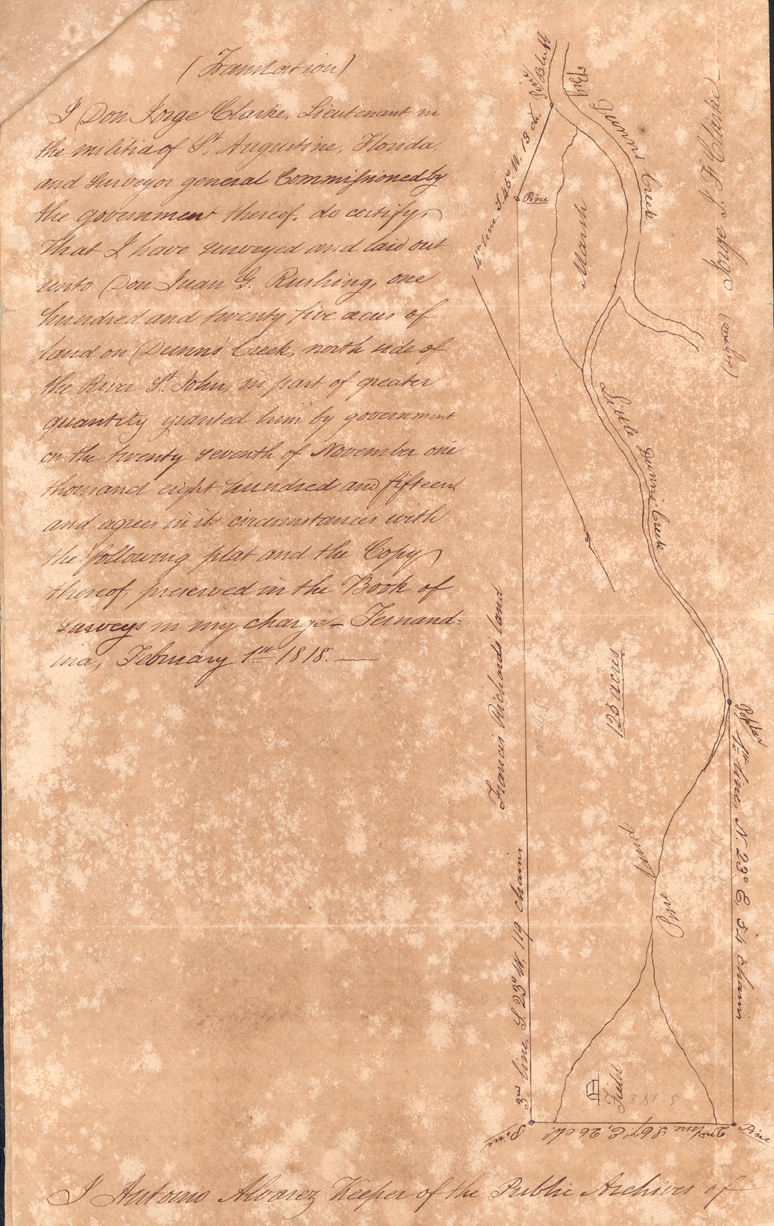 (Translation)
I Don Jorge Clarke, Lieutenant in
the militia of St. Augustine, Florida,
and surveyor general Commissioned by
the government thereof, do certify,
that I have surveyed and laid out
unto Don Juan G. Rushing, one
hundred and twenty five acres of
land on Dunn's Creek, north side of
the River St. John, in part of greater
quantity granted him by government
on the twenty seventh of November one
thousand eight hundred and fifteen
and agrees in its circumstances with
the following plat and the Copy
thereof preserved in the Book of
surveys in my charge - Fernand-
ina, February 1st 1818.
Jorge J. F. Clarke
Bluff
Big
Creek
4th line, S 45° W. 13 ch.
Pine
Marsh
Little Dunn's Creek
Francis Richards land
125 acres
1st line, N. 23° E. 54 chains
Pine land
3rd line, S 23° W. 119 chains
Field
2nd line S 67° E. 26 chs
Pine
Pine
I Antonio Alvarez Keeper of the Public Archives of